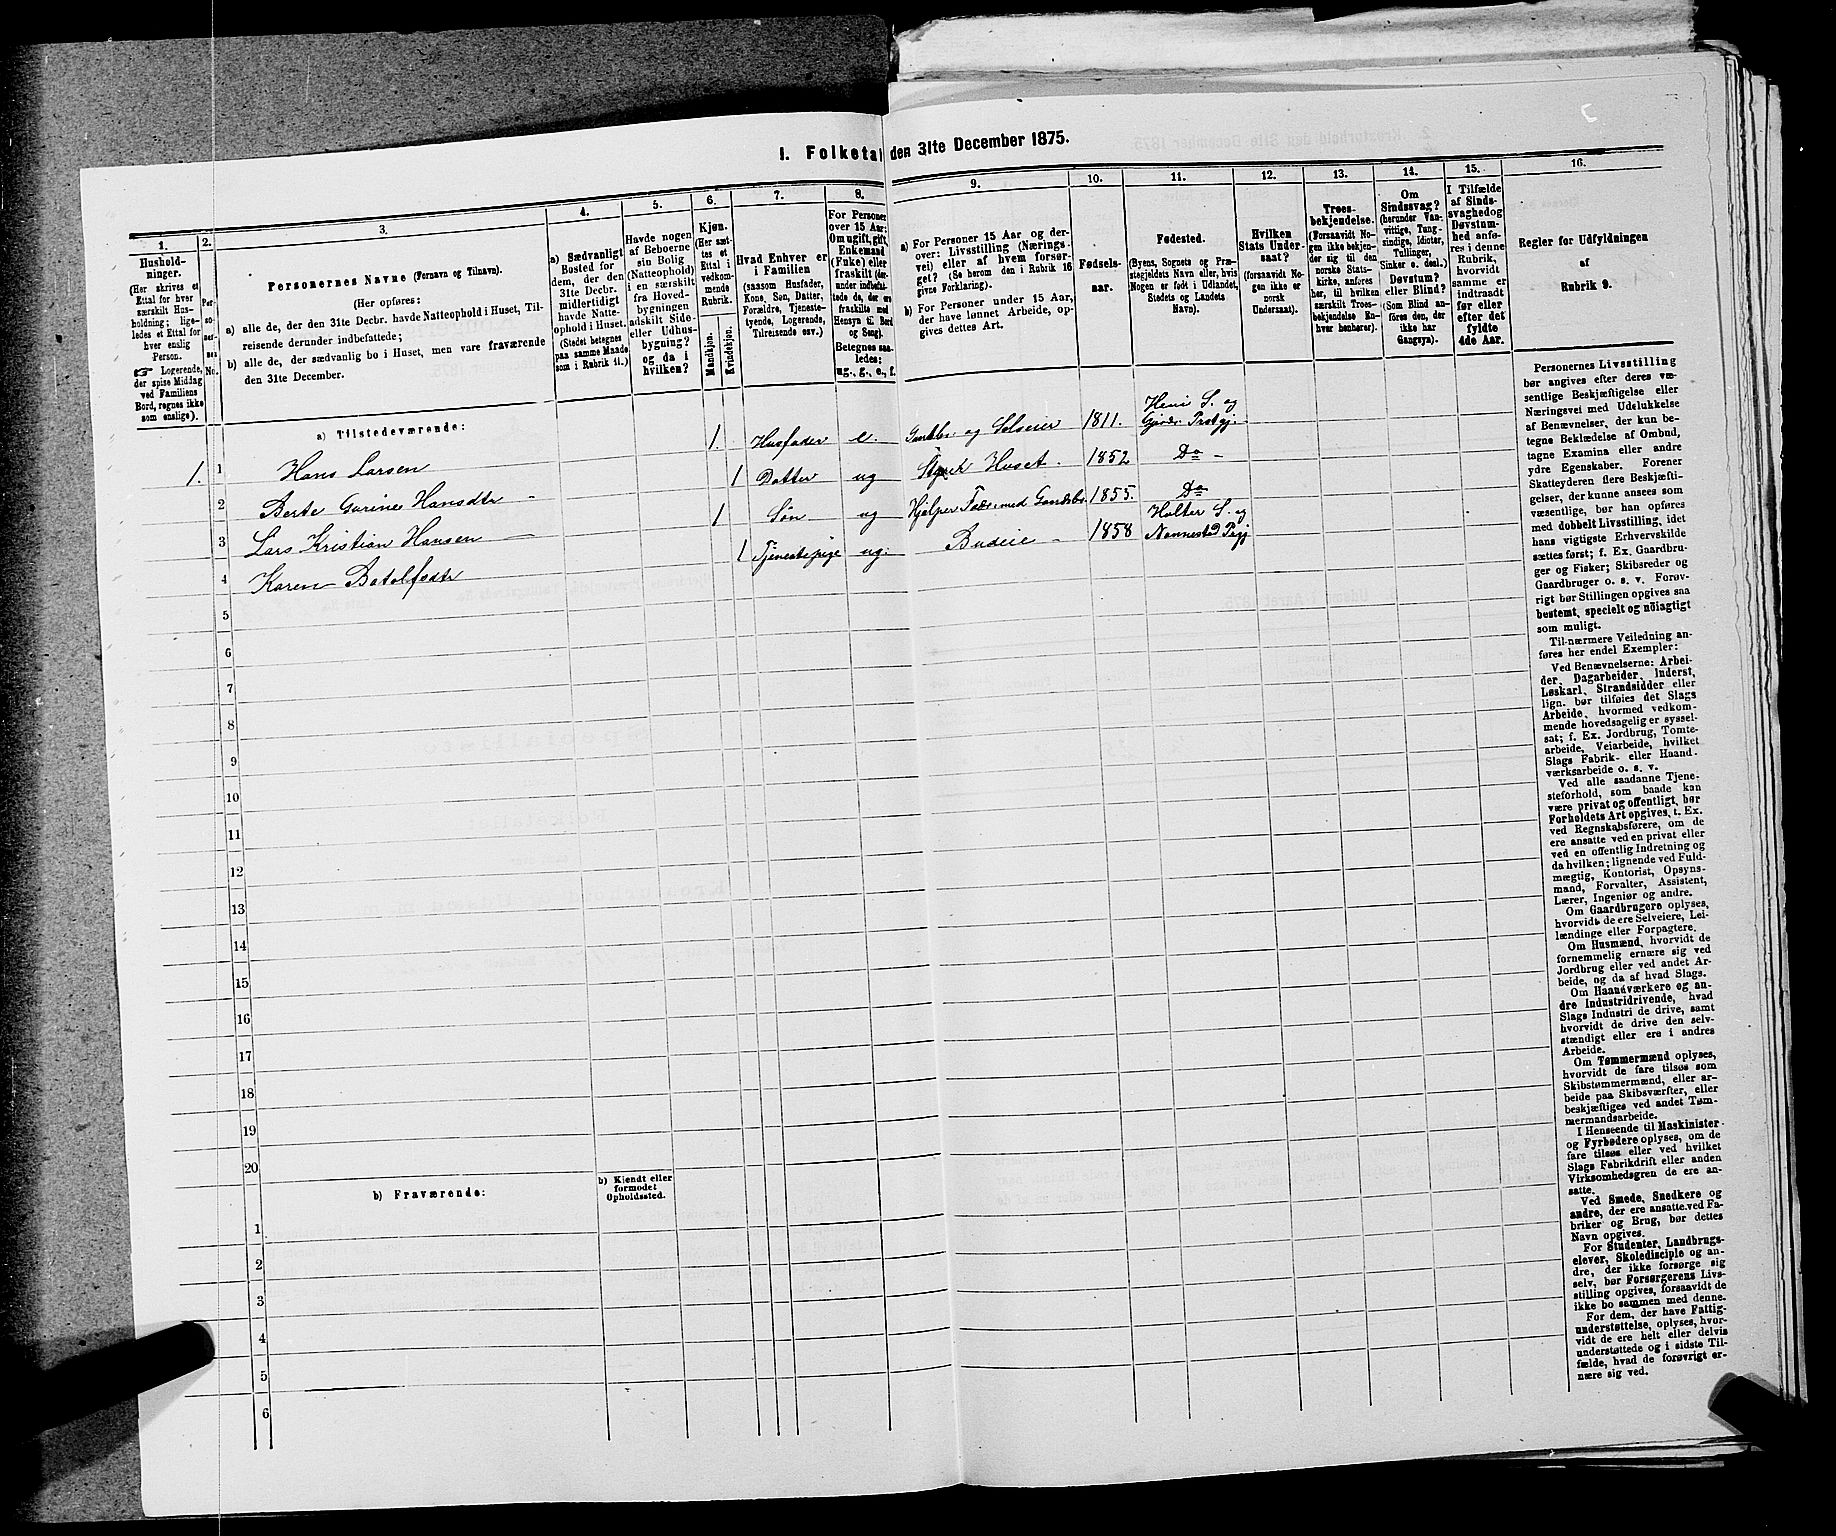 I. Folketal den 31te December 1875.
1.
Hushold-
ninger.
(Her skrives et
Ettal for hver
særskilt Hus-
holdning; lige-
ledes et Ettal for
hver enslig
Person.
☞ Logerende,
der spise Middag
ved Familiens
Bord, regnes ikke
som enslige).
2.
Per-
so-
ner-
nes
No.
3.
Personernes Navne (Fornavn og Tilnavn).
(Her opføres:
a) alle de, der den 31te Decbr. havde Natteophold i Huset, Til-
reisende derunder indbefattede;
b) alle de, der sædvanlig bo i Huset, men vare fraværende
den 31te December.
4.
a) Sædvanligt
Bosted for
dem, der den
31te Decbr.
midlertidigt
havde Natte-
ophold i Huset.
(Stedet betegnes
paa samme Maade
som i Rubrik 11.)
5.
Havde nogen
af Beboerne
sin Bolig
(Natteophold)
i en særskilt
fra Hoved-
bygningen
adskilt Side-
eller Udhus-
bygning?
og da i
hvilken?
6.
Kjøn.
(Her sæt-
tes et
Ettal i
vedkom-
mende
Rubrik.
Mandkjøn.
Kvindekjøn.
7.
Hvad Enhver er
i Familien
(saasom Husfader,
Kone, Søn, Datter,
Forældre, Tjeneste-
tyende, Logerende,
Tilreisende osv.)
8.
For Personer
over 15 Aar:
Om ugift, gift,
Enkemand
(Enke) eller
fraskilt (der-
under indbefat-
tede de, der ere
fraskilte med
Hensyn til Bord
og Seng).
Betegnes saa-
ledes:
ug., g., e., f.
9.
a) For Personer 15 Aar og der-
over: Livsstilling (Nærings-
vei) eller af hvem forsør-
get? (Se herom den i Rubrik 16
givne Forklaring).
b) For Personer under 15 Aar,
der have lønnet Arbeide, op-
gives dettes Art.
10.
Fødsels-
aar.
11.
Fødested.
(Byens, Sognets og Præ-
stegjeldets Navn eller, hvis
Nogen er født i Udlandet,
Stedets og Landets
Navn).
12.
Hvilken
Stats Under-
saat?
(forsaavidt No-
gen ikke er
norsk
Undersaat).
13.
Troes-
bekjendelse.
(Forsaavidt No-
gen ikke bekjen-
der sig til den
norske Stats-
kirke, anføres
her, til hvilken
særskilt Troes-
bekjendelse En-
hver henhører).
14.
Om
Sindssvag?
(herunder Van-
vittige, Tung-
sindige, Idioter,
Tullinger,
Sinker o. desl.)
Døvstum?
eller Blind?
(Som Blind an-
føres den, der
ikke har
Gangsyn).
15.
I Tilfælde
af Sinds-
svaghed og
Døvstum-
hed anfø-
res i denne
Rubrik,
hvorvidt
samme er
indtraadt
før eller
efter det
fyldte
4de Aar.
16.
Regler for Udfyldningen
af
Rubrik 9.
a) Tilstedeværende:
1. 1 Hans Larsen 1. Husfader e. Gaardbr. og Selveier 1811. Heni S. og Gjerdr. Prstgj.
2 Berte Gurine Hansdtr 1 Datter ug Styrer Huset. 1852 Do
3 Lars Kristian Hansen 1 Søn ug Hjælper Fader med Gaardsbr. 1855. Do
4 Karen Botolfsdtr 1 Tjenestepige ug. Budeie 1858 Holter S. og Nannestad Pgj
5
6
7
8
9
10
11
12
13
14
15
16
17
18
19
20
b) Fraværende:
b) Kjendt eller
formodet
Opholdssted.
1
2
3
4
5
6
Personernes Livsstilling
bør angives efter deres væ-
sentlige Beskjæftigelse eller
Næringsvei med Udelukkelse
af Benævnelser, der kun be-
tegne Beklædelse af Ombud,
tagne Examina eller andre
ydre Egenskaber. Forener
Skatteyderen flere Beskjæfti-
gelser, der kunne ansees som
væsentlige, bør han opføres
med dobbelt Livsstilling, idet
hans vigtigste Erhvervskilde
sættes først; f. Ex. Gaardbru-
ger og Fisker; Skibsreder og
Gaardbruger o. s. v. Forøv-
rigt bør Stillingen opgives saa
bestemt, specielt og nøiagtigt
som muligt.
Til nærmere Veiledning an-
føres her endel Exempler:
Ved Benævnelserne: Arbei-
der, Dagarbeider, Inderst,
Løskarl, Strandsidder eller
lign. bør tilføies det Slags
Arbeide, hvormed vedkom-
mende hovedsagelig er syssel-
sat; f. Ex. Jordbrug, Tomte-
arbeide, Veiarbeide, hvilket
Slags Fabrik- eller Haand-
værksarbeide o. s. v.
Ved alle saadanne Tjene-
steforhold, som baade kan
være privat og offentligt, bør
Forholdets Art opgives, t. Ex.
ved Regnskabsførere, om de
ere ansatte ved en privat eller
ved en offentlig Indretning og
da hvilken; lignende ved Fuld-
mægtig, Kontorist, Opsyns-
mand, Forvalter, Assistent,
Lærer, Ingeniør og andre.
Om Gaardbrugere oplyses,
hvorvidt de ere Selveiere, Lei-
lændinge eller Forpagtere.
Om Husmænd, hvorvidt de
fornemmelig ernære sig ved
Jordbrug eller ved andet Ar-
beide, og da af hvad Slags.
Om Haandværkere og an-
dre Industridrivende, hvad
Slags Industri de drive, samt
hvorvidt de drive den selv-
stændigt eller ere i andres
Arbeide.
Om Tømmermænd oplyses,
hvorvidt de fare tilsøs som
Skibstømmermænd, eller ar-
beide paa Skibsværfter, eller
beskjæftiges ved andet Tøm-
mermandsarbeide.
I Henseende til Maskinister
og Fyrbødere oplyses, om de
fare tilsøs eller ved hvilket
Slags Fabrikdrift eller anden
Virksomhedsgren de ere an-
satte.
Ved Smede, Snedkere og
andre, der ere ansatte ved Fa-
briker og Brug, bør dettes
Navn opgives.
For Studenter, Landbrugs-
elever, Skoledisciple og an-
dre, der ikke forsørge sig
selv, bør Forsørgerens Livs-
stilling opgives, forsaavidt de
ikke bo sammen med denne.
For dem, der have Fattig-
understøttelse, oplyses, hvor-
vidt de ere helt eller delvis
understøttede og i sidste Til-
fælde, hvad de forøvrigt er-
nære sig ved.